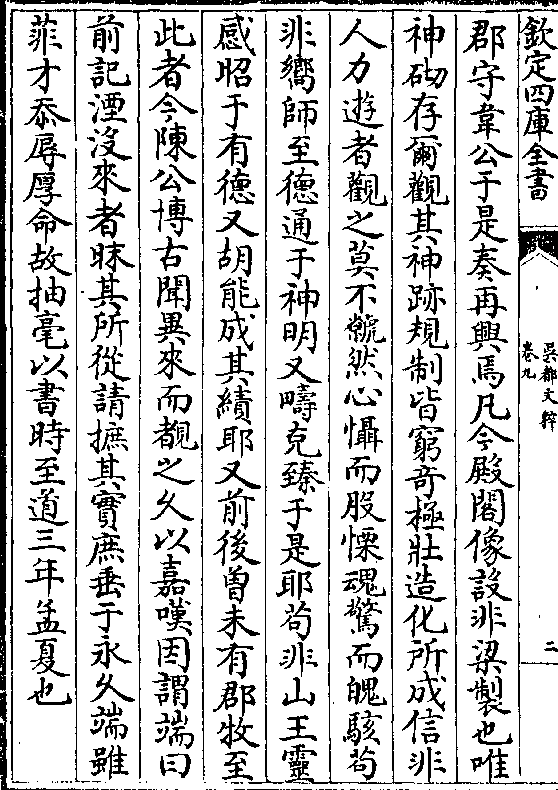 欽定四庫全書
吳都文粹
卷九
二
郡守韋公于是奏再興焉凡今殿閣像設非梁製也唯
神砌存爾觀其神跡規制皆窮奇極壯造化所成信非
人力遊者觀之莫不虩然心懾而股慄魂驚而魄駭苟
非嚮師至德通于神明又疇克臻于是耶苟非山王靈
感昭于有德又胡能成其績耶又前後曾未有郡牧至
此者今陳公博古聞異來而覩之久以嘉嘆因謂端曰
前記湮沒來者昧其所從請摭其實庶垂于永久端雖
菲才忝辱厚命故抽毫以書時至道三年孟夏也